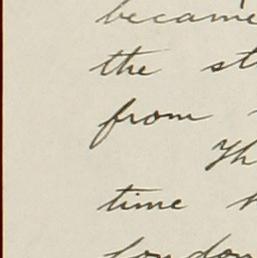 became
the
from
time
London